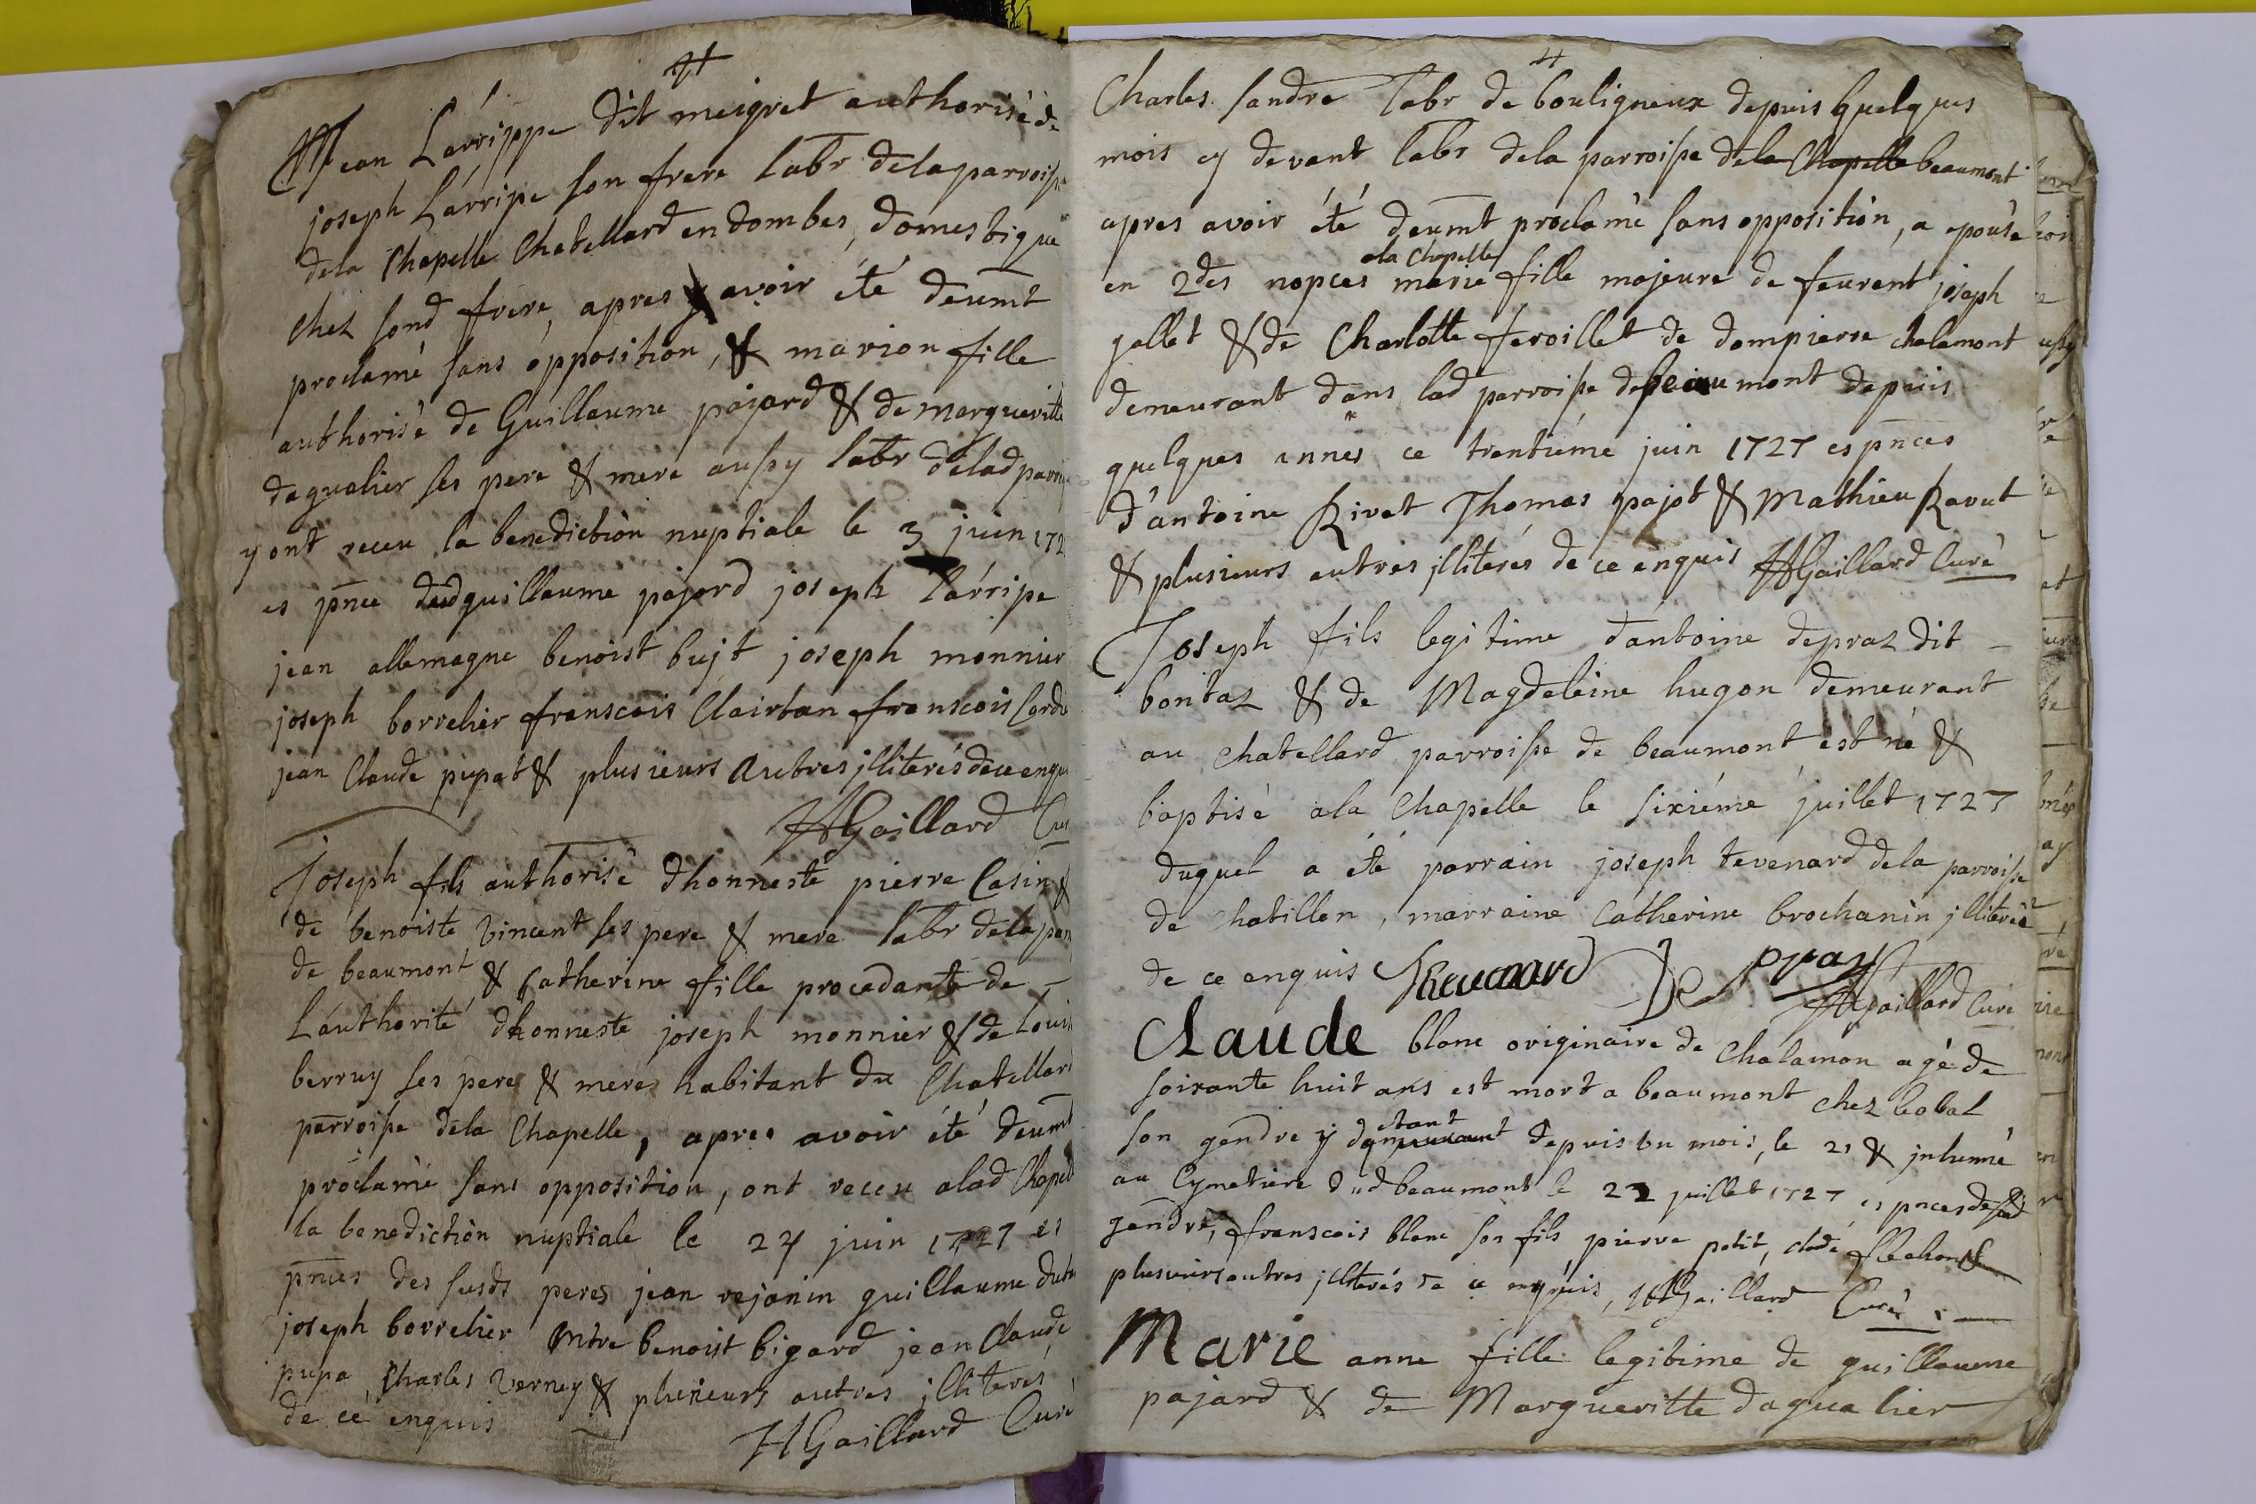 Jean Larrippe dit meigret authorisé de
joseph Larripe son frere labr dela parroisse
dela Chapelle Chatellard en dombes, domestique
chez sond frere, apres avoir été deumt
proclamé sans opposition, & marion fille
authorisé de Guillaume pajard & de margueritte
dagualier ses pere & mere aussy labr delad parroi
y ont receu la benediction nuptiale le 3 juin 172
es pnce dud guillaume pajard joseph Larripe
jean allemagne benoist bujt joseph monnier
joseph borrelier franscois Clairtan franscois Cordi
jean Claude pupat & plusieurs autres jlliterés de ce enqui
HGaillard Cur
Joseph fils authorisé dhonneste pierre Casin &
de benoiste Vincent ses pere & mere labr dela par
de beaumont & Catherine fille procedante de
Lauthorité dhonneste joseph monnier & de Louis
berruy ses peres & meres habitant du Chatellard
parroisse dela Chapelle, apres avoir été deumt
proclamé sans opposition, ont receu alad Chapelle
la benediction nuptiale le 24 juin 1727 es
pnces des susds peres jean rejanin guillaume dut
joseph borrelier mtre benoist bigard jean Claude
pupa Charles Verney & plusieurs autres jlliterés
de ce enquis HGaillard Curé
4
Charles sandre labr de bouligneux depuis quelques
mois cy devant labr dela parroisse dela Chapelle beaumont
apres avoir été deumt proclamé sans opposition, a epousé
ala Chapelle
en 2des nopces marie fille majeure de feurent joseph
gallet & de Charlotte feroillet de dompierre chalamont
demeurant dans lad parroisse de beaumont depuis
quelques annés ce trentiéme juin 1727 es pnces
d'antoine Rivet Thomas pajot & Mathieu Ravut
& plusieurs autres jlliterés de ce enquis HGaillard Curé
Joseph fils legitime dantoine depraz dit
bontaz & de Magdeleine hugon demeurant
au chatellard parroisse de beaumont est né &
baptisé ala Chapelle le sixiéme juillet 1727
duquel a été parrain joseph tevenard dela parroisse
de chatillon, marraine Catherine brochanin jlliterée
de ce enquis Thevenard De pras
HGaillard Curé
Claude blanc originaire de Chalamon agé de
soixante huit ans est mort a beaumont chez bobal
etant
son gendre y demeurant depuis un mois, le 21 & jnhumé
au Cymetiere dud beaumont le 22 juillet 1727 es pnces de sd
gendre, franscois blanc son fils pierre petit, clade flechon &
plusieurs autres jlliterés de ce enquis, HGaillard Curé
Marie anne fille legitime de guillaume
pajard & de Margueritte dagualier